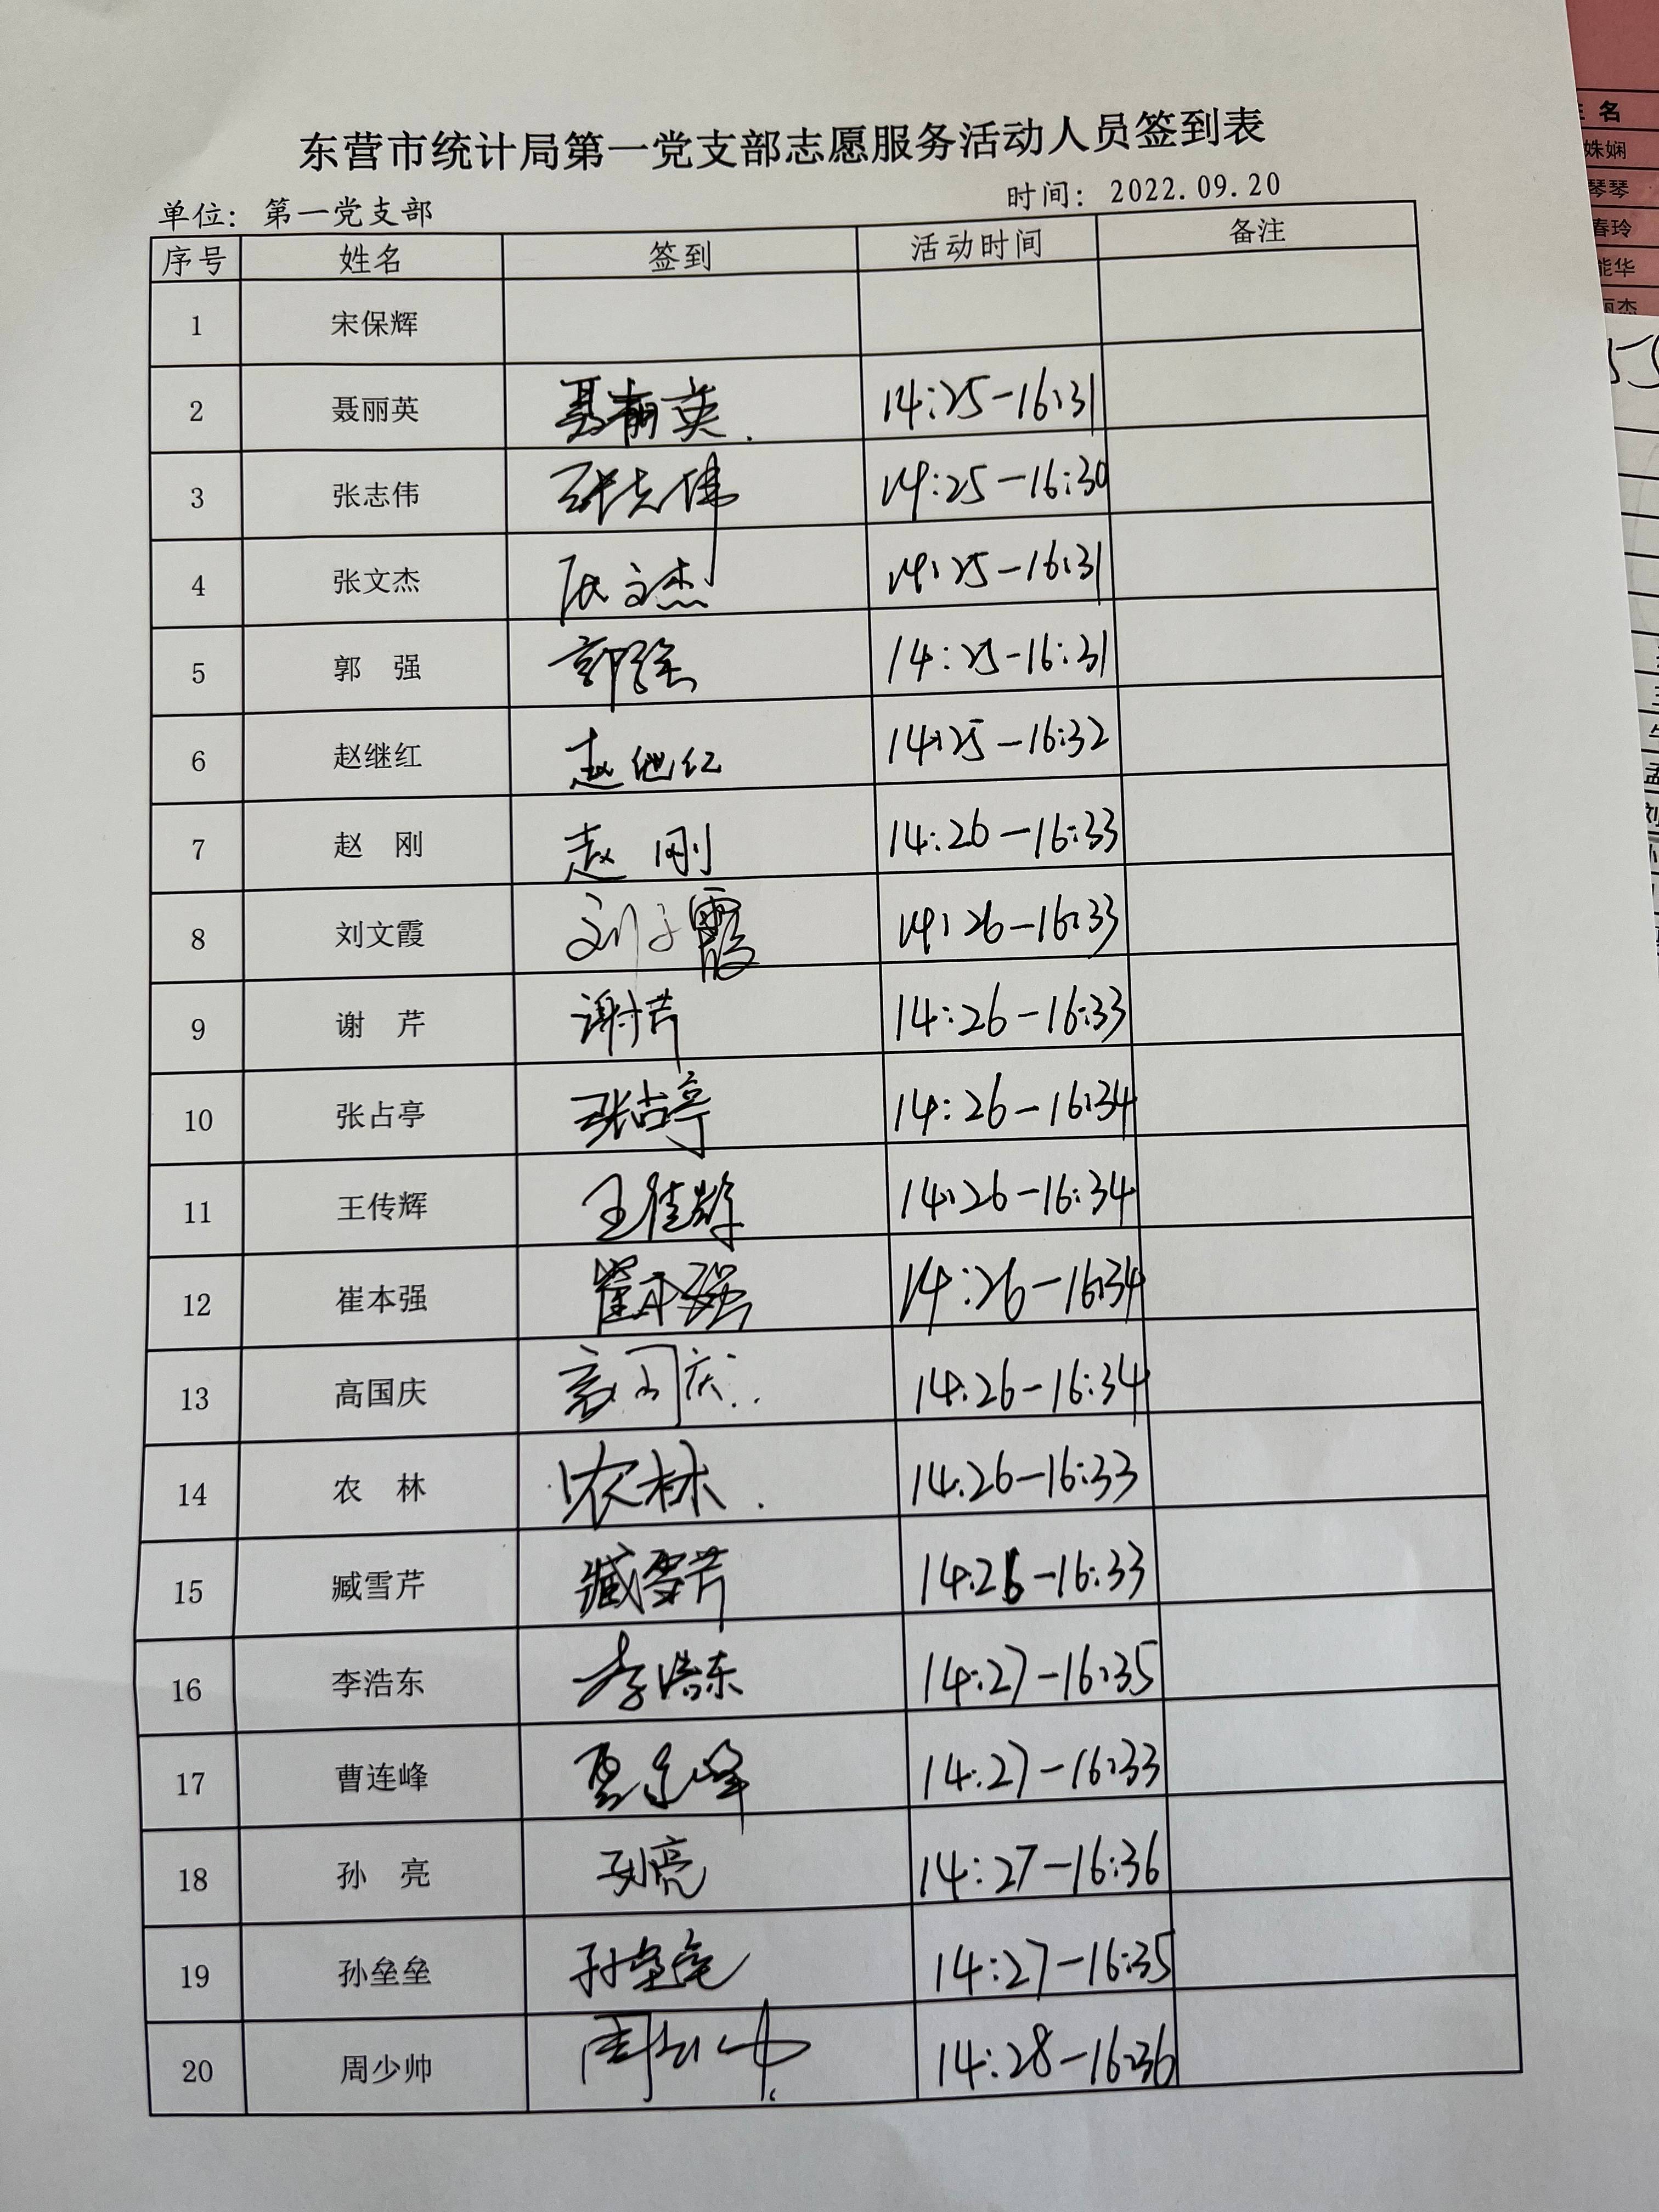 东营市统计局第一党支部志愿服务活动人员签到表
单位：第一党支部 时间：2022.09.20
序号 姓名 签到 活动时间 备注
1 宋保辉
2 聂丽英 聂丽英 14:25-16:31
3 张志伟 张志伟 14:25-16:30
4 张文杰 张文杰 14:25-16:31
5 郭 强 郭强 14:25-16:31
6 赵继红 赵继红 14:25-16:32
7 赵 刚 赵刚 14:26-16:33
8 刘文霞 刘文霞 14:26-16:33
9 谢 芹 谢芹 14:26-16:33
10 张占亭 张占亭 14:26-16:34
11 王传辉 王传辉 14:26-16:34
12 崔本强 崔本强 14:26-16:34
13 高国庆 高国庆 14:26-16:34
14 农 林 农林 14:26-16:33
15 臧雪芹 臧雪芹 14:26-16:33
16 李浩东 李浩东 14:27-16:35
17 曹连峰 曹连峰 14:27-16:33
18 孙 亮 孙亮 14:27-16:36
19 孙垒垒 孙垒垒 14:27-16:35
20 周少帅 周少帅 14:28-16:36
名
姝娴
琴琴
春玲
能华
丽杰